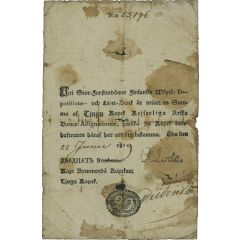 No 65176
Uti Stor-Furstendömet Finlands Wäxel-, De-
positions- och Låne-Bank är insatt en Summa
af, Tjugu Kopek Kejserliga Ryska
Banco Assignationer, hwilka 20 Kopek inne-
hafwaren häraf har att återbekomma. Åbo den
22 Junii 1819
ДВАДЦАТЬ Копѣекъ.
Kaxi Kymmendä Kopekaa
Tjugu Kopek.